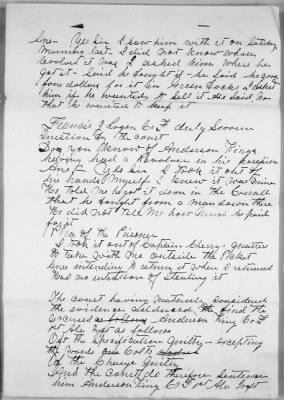 Ans - Yes Sir I saw him with it on Saturday
Morning last. I did not know whose
revolver it was I asked him where he
got it - Said he bought it - he said he gave
four dollars for it in Green backs I asked
him if he wanted to sell it. He said No
that he wanted to keep it
Francis J Logan Co F duly Sworn
by the court
Do you know of Anderson King
having had a Revolver in his possession
Ans Yes Sir I took it out of
his hands Myself I knew it was mine
He told me he got it down in the
that he bought from a man down there
He did not tell me how much he paid
for it
Plea of the Prisoner
I took it out of Captain Cherry quarter
to take with me outside the Picket
line intending to return it when I returned
Had no intention of Stealing it
The Court having maturely considered
the evidence adduced find the
accused Anderson King Co F
1st Ala Regt as follows
Of the Specification Guilty - excepting
the words
Of the Charge Guilty
And the Court do therefore sentence
him Anderson King Co F 1st Ala Regt